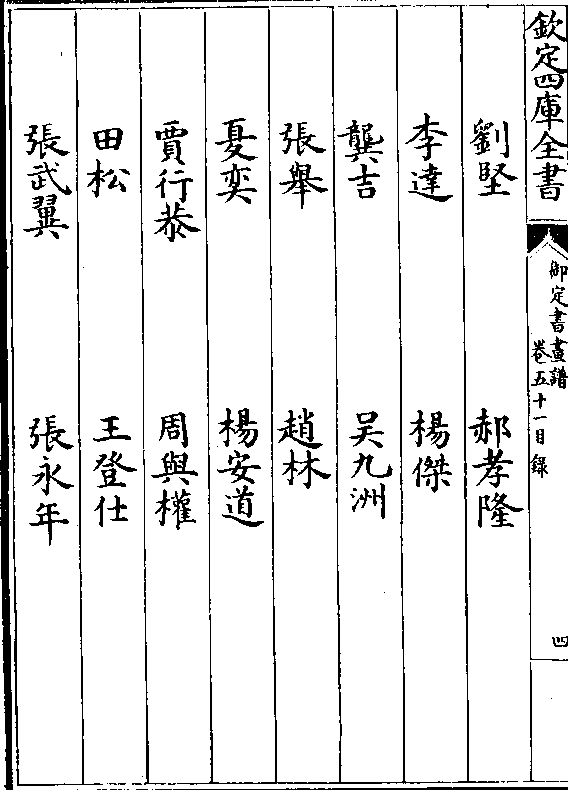 欽定四庫全書
御定書畫譜
卷五十一目録
四
劉堅 郝孝隆
李達 楊傑
龔吉 吴九洲
張舉 趙林
夏奕 楊安道
賈行恭 周與權
田松 王登仕
張武翼 張永年